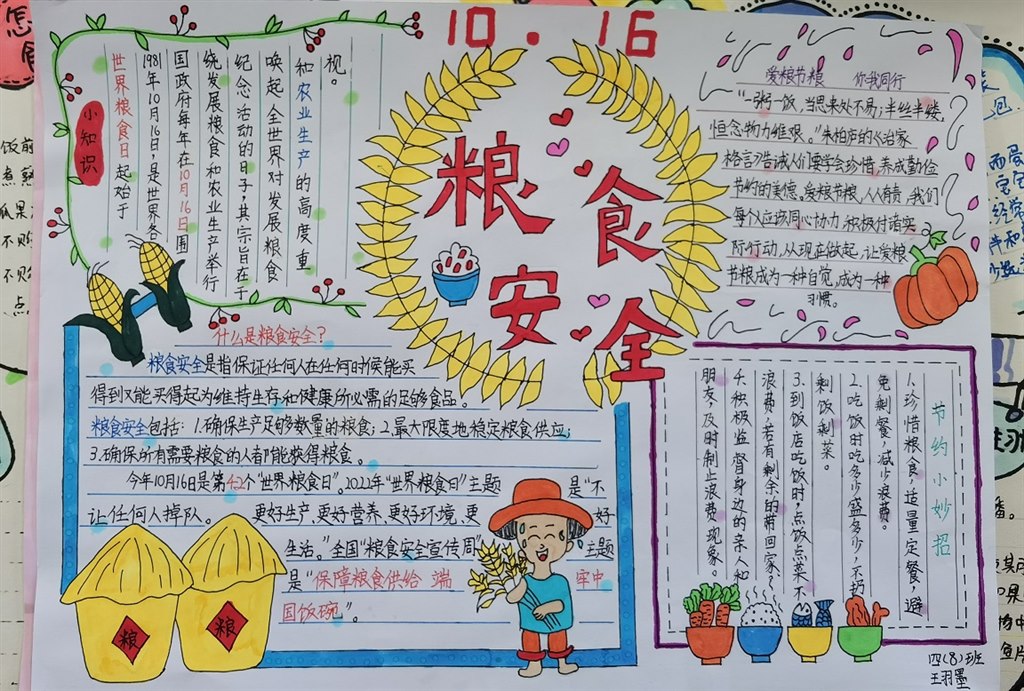 10.16
粮食安全
小知识
世界粮食日起始于
1981年10月16日，是世界各
国政府每年在10月16日围
绕发展粮食和农业生产举行
纪念活动的日子，其宗旨在于
唤起全世界对对发展粮食
和农业生产的高度重
视。
爱粮节粮 你我同行
“一粥一饭，当思来处不易；半丝半缕，
恒念物力维艰。”朱柏庐的《治家
格言》告诫人们要学会珍惜，养成勤俭
节约的美德，爱粮节粮，人人有责，我们
每个人应该同心协力，积极付诸实
际行动，从现在做起，让爱粮
节粮成为一种自觉，成为一种
习惯。
什么是粮食安全？
粮食安全是指保证任何人在任何时候能买
得到又能买得起为维持生存和健康所必需的足够食品。
粮食安全包括：1.确保生产足够多数量的粮食；2.最大限度地稳定粮食供应；
3.确保所有需要粮食的人都能获得粮食。
今年10月16日是第42个“世界粮食日”。2022年“世界粮食日”主题是“不
让任何人掉队。更好生产、更好营养、更好环境、更好
生活。”全国“粮食安全宣传周”主题
是“保障粮食供给 端牢中
国饭碗”。
粮
粮
节约小妙招
1.珍惜粮食，适量定餐，避
免剩餐，减少浪费。
2.吃饭时吃多少盛多少，不扔
剩饭剩菜。
3.到饭店吃饭时，点饭点菜不
浪费，若有剩余的带回家。
4.积极监督身边的亲人和
朋友，及时制止浪费现象。
四(8)班
王羽墨